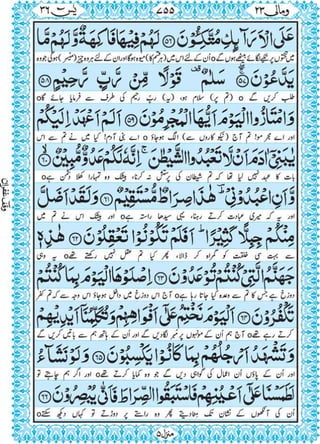 ومالی ۲۳ ۷۵۵ یٰسٓ ۳۶
عَلَى الْاَرَآئِكِ مُتَّكِـُٔوْنَ ﴿۵۶﴾ لَهُمْ فِيْهَا فَاكِهَةٌ وَّلَهُمْ مَّا
يَدَّعُوْنَ ﴿۵۷﴾ سَلٰمٌ قَوْلًا مِّنْ رَّبٍّ رَّحِيْمٍ ﴿۵۸﴾
طلب کریں گے o (تم پر) سلام ہو، (یہ) ربِّ رحیم کی طرف سے فرمایا جائے گا o
وَامْتَازُوا الْيَوْمَ اَيُّهَا الْمُجْرِمُوْنَ ﴿۵۹﴾ اَلَمْ اَعْهَدْ اِلَيْكُمْ
اور اے مجرمو! تم آج (نیکو کاروں سے) الگ ہو جاؤ o اے بنی آدم! کیا میں نے تم سے اس
يٰبَنِيْٓ اٰدَمَ اَنْ لَّا تَعْبُدُوا الشَّيْطٰنَ ۚ اِنَّهٗ لَكُمْ عَدُوٌّ مُّبِيْنٌ ﴿۶۰﴾
بات کا عہد نہیں لیا تھا کہ تم شیطان کی پرستش نہ کرنا، بیشک وہ تمہارا کھلا دشمن ہے o
وَّاَنِ اعْبُدُوْنِيْ ؔؕ هٰذَا صِرَاطٌ مُّسْتَقِيْمٌ ﴿۶۱﴾ وَلَقَدْ اَضَلَّ
اور یہ کہ میری عبادت کرتے رہنا، یہی سیدھا راستہ ہے o اور بیشک اس نے تم میں
مِنْكُمْ جِبِلًّا كَثِيْرًا ؕ اَفَلَمْ تَكُوْنُوْا تَعْقِلُوْنَ ﴿۶۲﴾ هٰذِهٖ
سے بہت سی خلقت کو گمراہ کر ڈالا، پھر کیا تم عقل نہیں رکھتے تھے o یہ وہی
جَهَنَّمُ الَّتِيْ كُنْتُمْ تُوْعَدُوْنَ ﴿۶۳﴾ اِصْلَوْهَا الْيَوْمَ بِمَا كُنْتُمْ
دوزخ ہے جس کا تم سے وعدہ کیا جاتا رہا ہے o آج اس دوزخ میں داخل ہو جاؤ اس وجہ سے کہ تم کفر
تَكْفُرُوْنَ ﴿۶۴﴾ اَلْيَوْمَ نَخْتِمُ عَلٰٓى اَفْوَاهِهِمْ وَتُكَلِّمُنَآ اَيْدِيْهِمْ
کرتے رہے تھے o آج ہم اُن کے مونہوں پر مُہر لگا دیں گے اور اُن کے ہاتھ ہم سے باتیں کریں گے
وَتَشْهَدُ اَرْجُلُهُمْ بِمَا كَانُوْا يَكْسِبُوْنَ ﴿۶۵﴾ وَلَوْ نَشَآءُ
اور اُن کے پاؤں اُن اعمال کی گواہی دیں گے جو وہ کمایا کرتے تھے o اور اگر ہم چاہتے تو
لَطَمَسْنَا عَلٰٓى اَعْيُنِهِمْ فَاسْتَبَقُوا الصِّرَاطَ فَاَنّٰى يُبْصِرُوْنَ ﴿۶۶﴾
اُن کی آنکھوں کے نشان تک مٹا دیتے پھر وہ راستے پر دوڑتے تو کہاں دیکھ سکتے o
منزل ۵